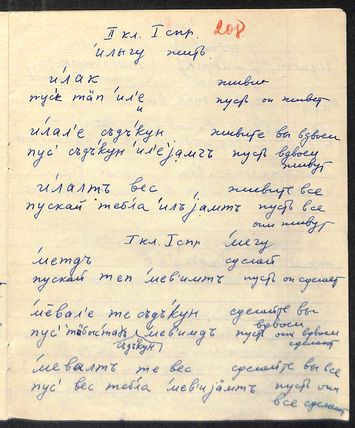 II кл. I спр. 208
и́лыгу жить
и́лак живи
пус́к тӓп ил'е́ пусть он живёт
и́лал'е съдъ́кун живите вы вдвоем
пус' съдъ́кун ил'е́jамтъ пусть вдвоем живут
и́лалтъ вес живите все
пускай тебла́ илъjамтъ пусть все они живут
I кл. I спр ме́гу
ме́тдъ сделай
пускай теп ме́вимтъ пусть он сделает
ме́вал'е те съдъ́кун сделайте вы вдвоем
пус' съдъ́кун ме́вимдъ пусть они вдвоем сделают
ме́валтъ те вес сделайте вы все
пус' вес тебла́ ме́виjамтъ пусть они все сделают